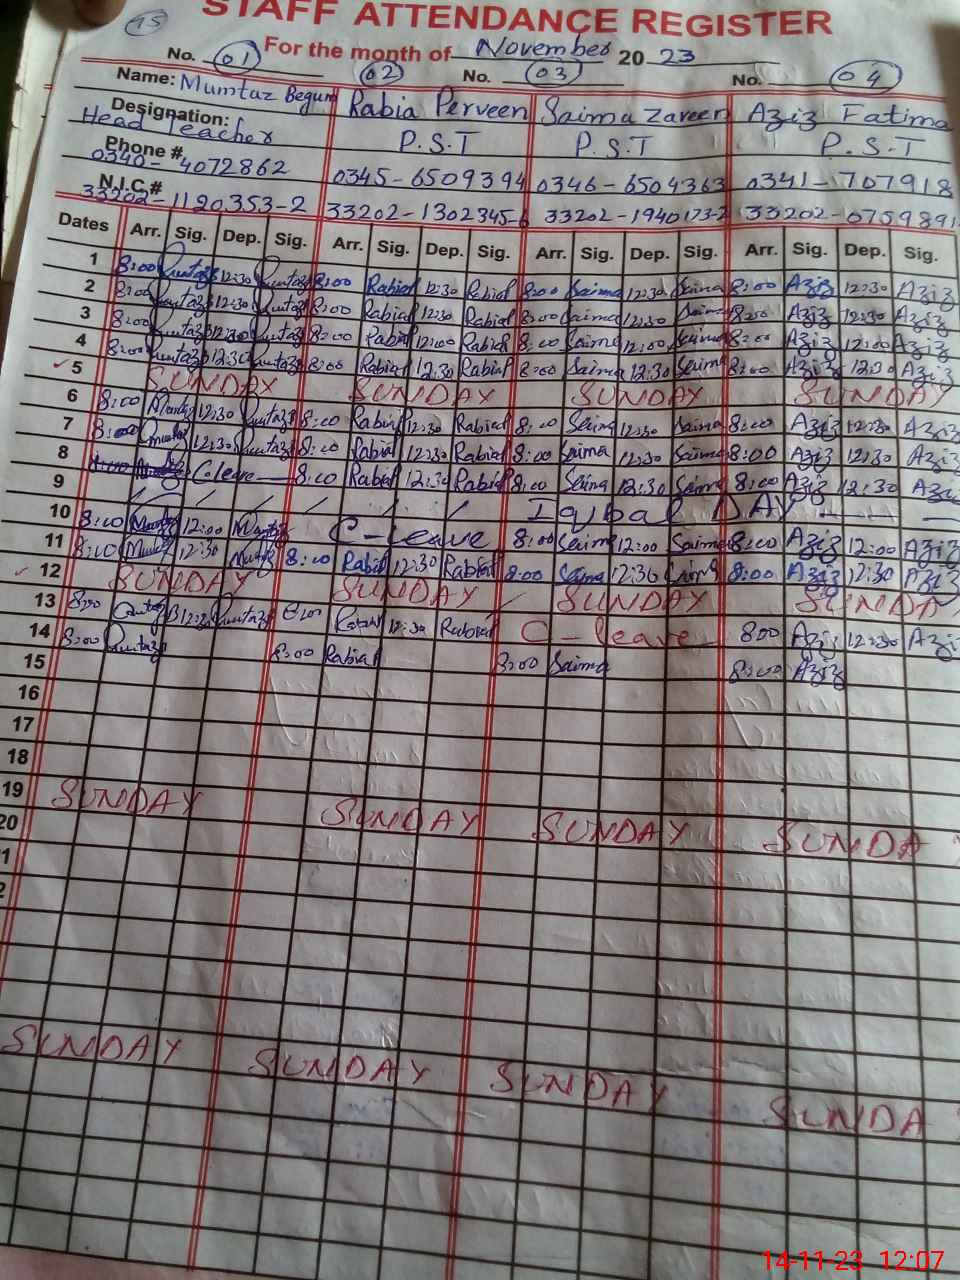 STAFF ATTENDANCE REGISTER
15
For the month of November 20 23
No. 01 02 No. 03 No. 04
Name: Mumtaz Begum Rabia Perveen Saima Zareen Aziz Fatima
Designation: Head Teacher P.S.T P.S.T P.S.T
Phone # 0340-4072862 0345-6509394 0346-6504363 0341-707918
N.I.C.# 33202-1120353-2 33202-1302345-6 33202-1940173-2 33202-0759891
Dates Arr. Sig. Dep. Sig. Arr. Sig. Dep. Sig. Arr. Sig. Dep. Sig. Arr. Sig. Dep. Sig.
1 8:00 Mumtaz 12:30 Mumtaz 8:00 Rabia 12:30 Rabia 8:00 Saima 12:30 Saima 8:00 Aziz 12:30 Aziz
2 8:00 Mumtaz 12:30 Mumtaz 8:00 Rabia 12:30 Rabia 8:00 Saima 12:30 Saima 8:00 Aziz 12:30 Aziz
3 8:00 Mumtaz 12:00 Mumtaz 8:00 Rabia 12:00 Rabia 8:00 Saima 12:00 Saima 8:00 Aziz 12:00 Aziz
4 8:00 Mumtaz 12:30 Mumtaz 8:00 Rabia 12:30 Rabia 8:00 Saima 12:30 Saima 8:00 Aziz 12:30 Aziz
5 SUNDAY SUNDAY SUNDAY SUNDAY
6 8:00 Mumtaz 12:30 Mumtaz 8:00 Rabia 12:30 Rabia 8:00 Saima 12:30 Saima 8:00 Aziz 12:30 Aziz
7 8:00 Mumtaz 12:30 Mumtaz 8:00 Rabia 12:30 Rabia 8:00 Saima 12:30 Saima 8:00 Aziz 12:30 Aziz
8 C leave 8:00 Rabia 12:30 Rabia 8:00 Saima 12:30 Saima 8:00 Aziz 12:30 Aziz
9 Iqbal DAY
10 8:00 Mumtaz 12:00 Mumtaz C-leave 8:00 Saima 12:00 Saima 8:00 Aziz 12:00 Aziz
11 8:00 Mumtaz 12:30 Mumtaz 8:00 Rabia 12:30 Rabia 8:00 Saima 12:30 Saima 8:00 Aziz 12:30 Aziz
12 SUNDAY SUNDAY SUNDAY SUNDA
13 8:00 Mumtaz Mumtaz 8:00 Rabia 12:30 Rabia C-leave 800 Aziz 12:30 Aziz
14 8:00 Mumtaz 8:00 Rabia 8:00 Saima 8:00 Aziz
15
16
17
18
19 SUNDAY SUNDAY SUNDAY SUNDA
20
1
2
SUNDAY SUNDAY SUNDAY SUNDA
14-11-23 12:07